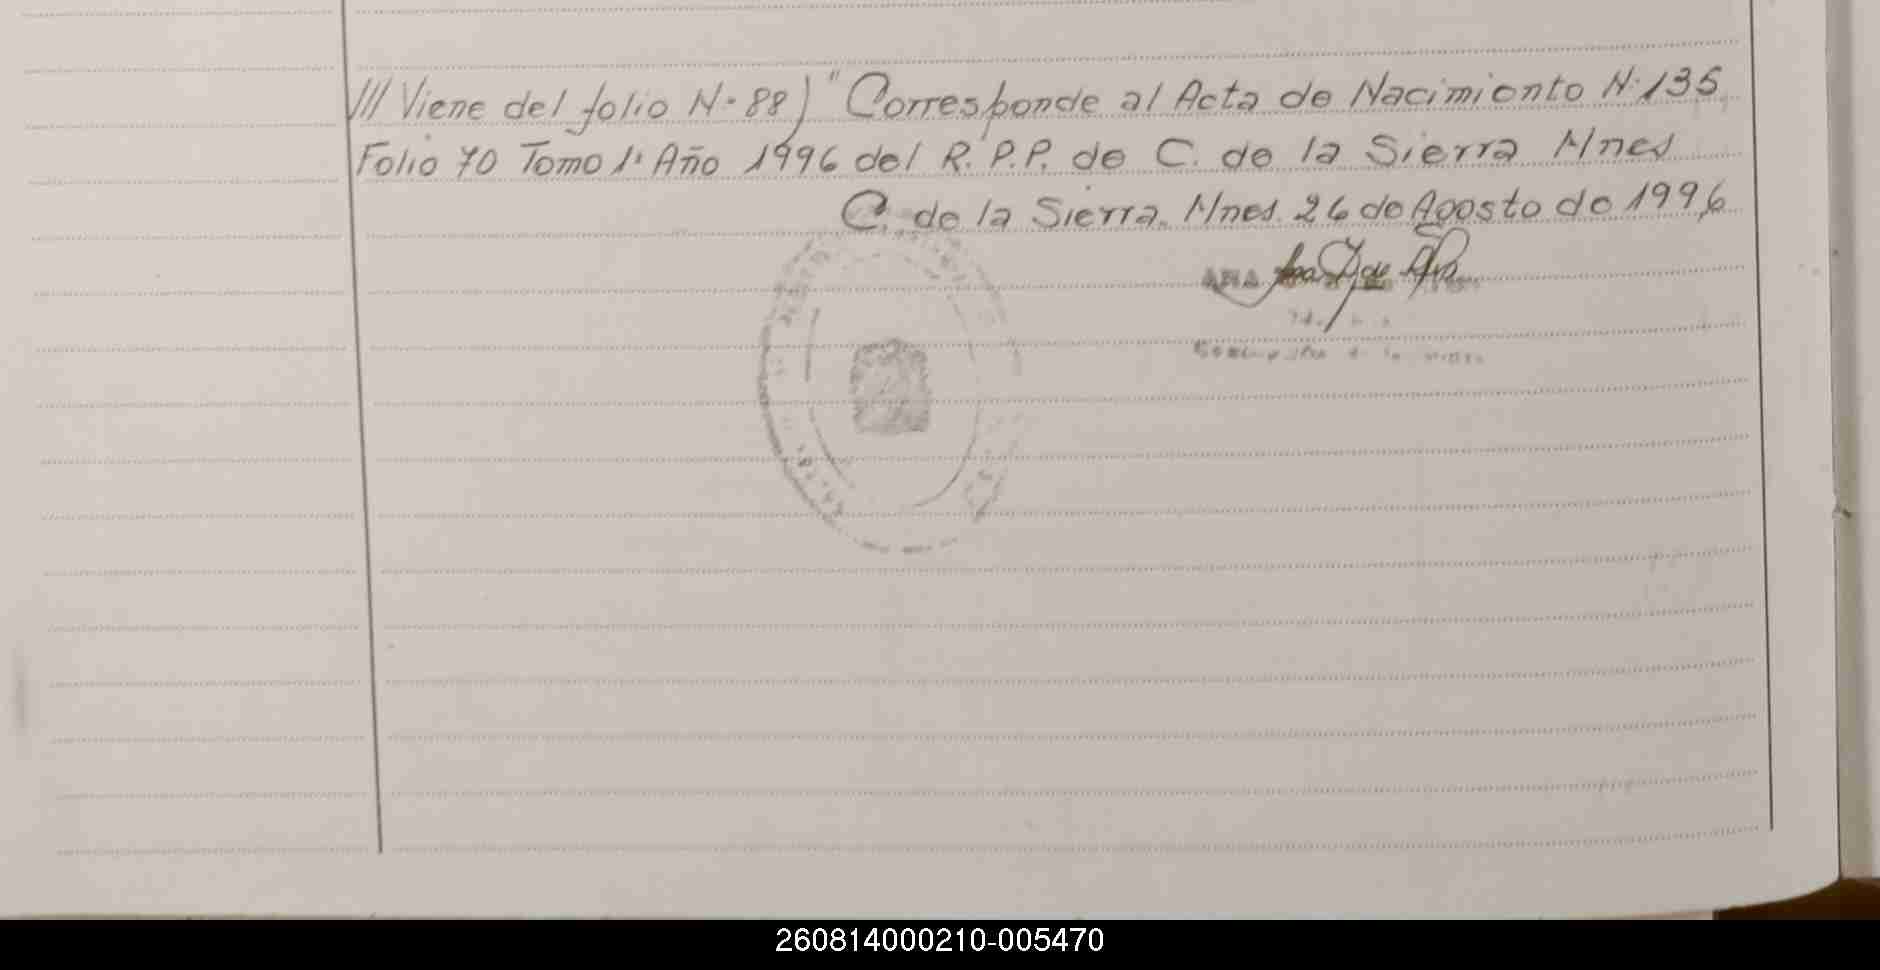 /// Viene del folio N· 88) "Corresponde al Acta de Nacimiento N· 135
Folio 70 Tomo 1° Año 1996 del R. P. P. de C. de la Sierra Mnes
C. de la Sierra. Mnes. 26 de Agosto de 1996
ANA
260814000210-005470